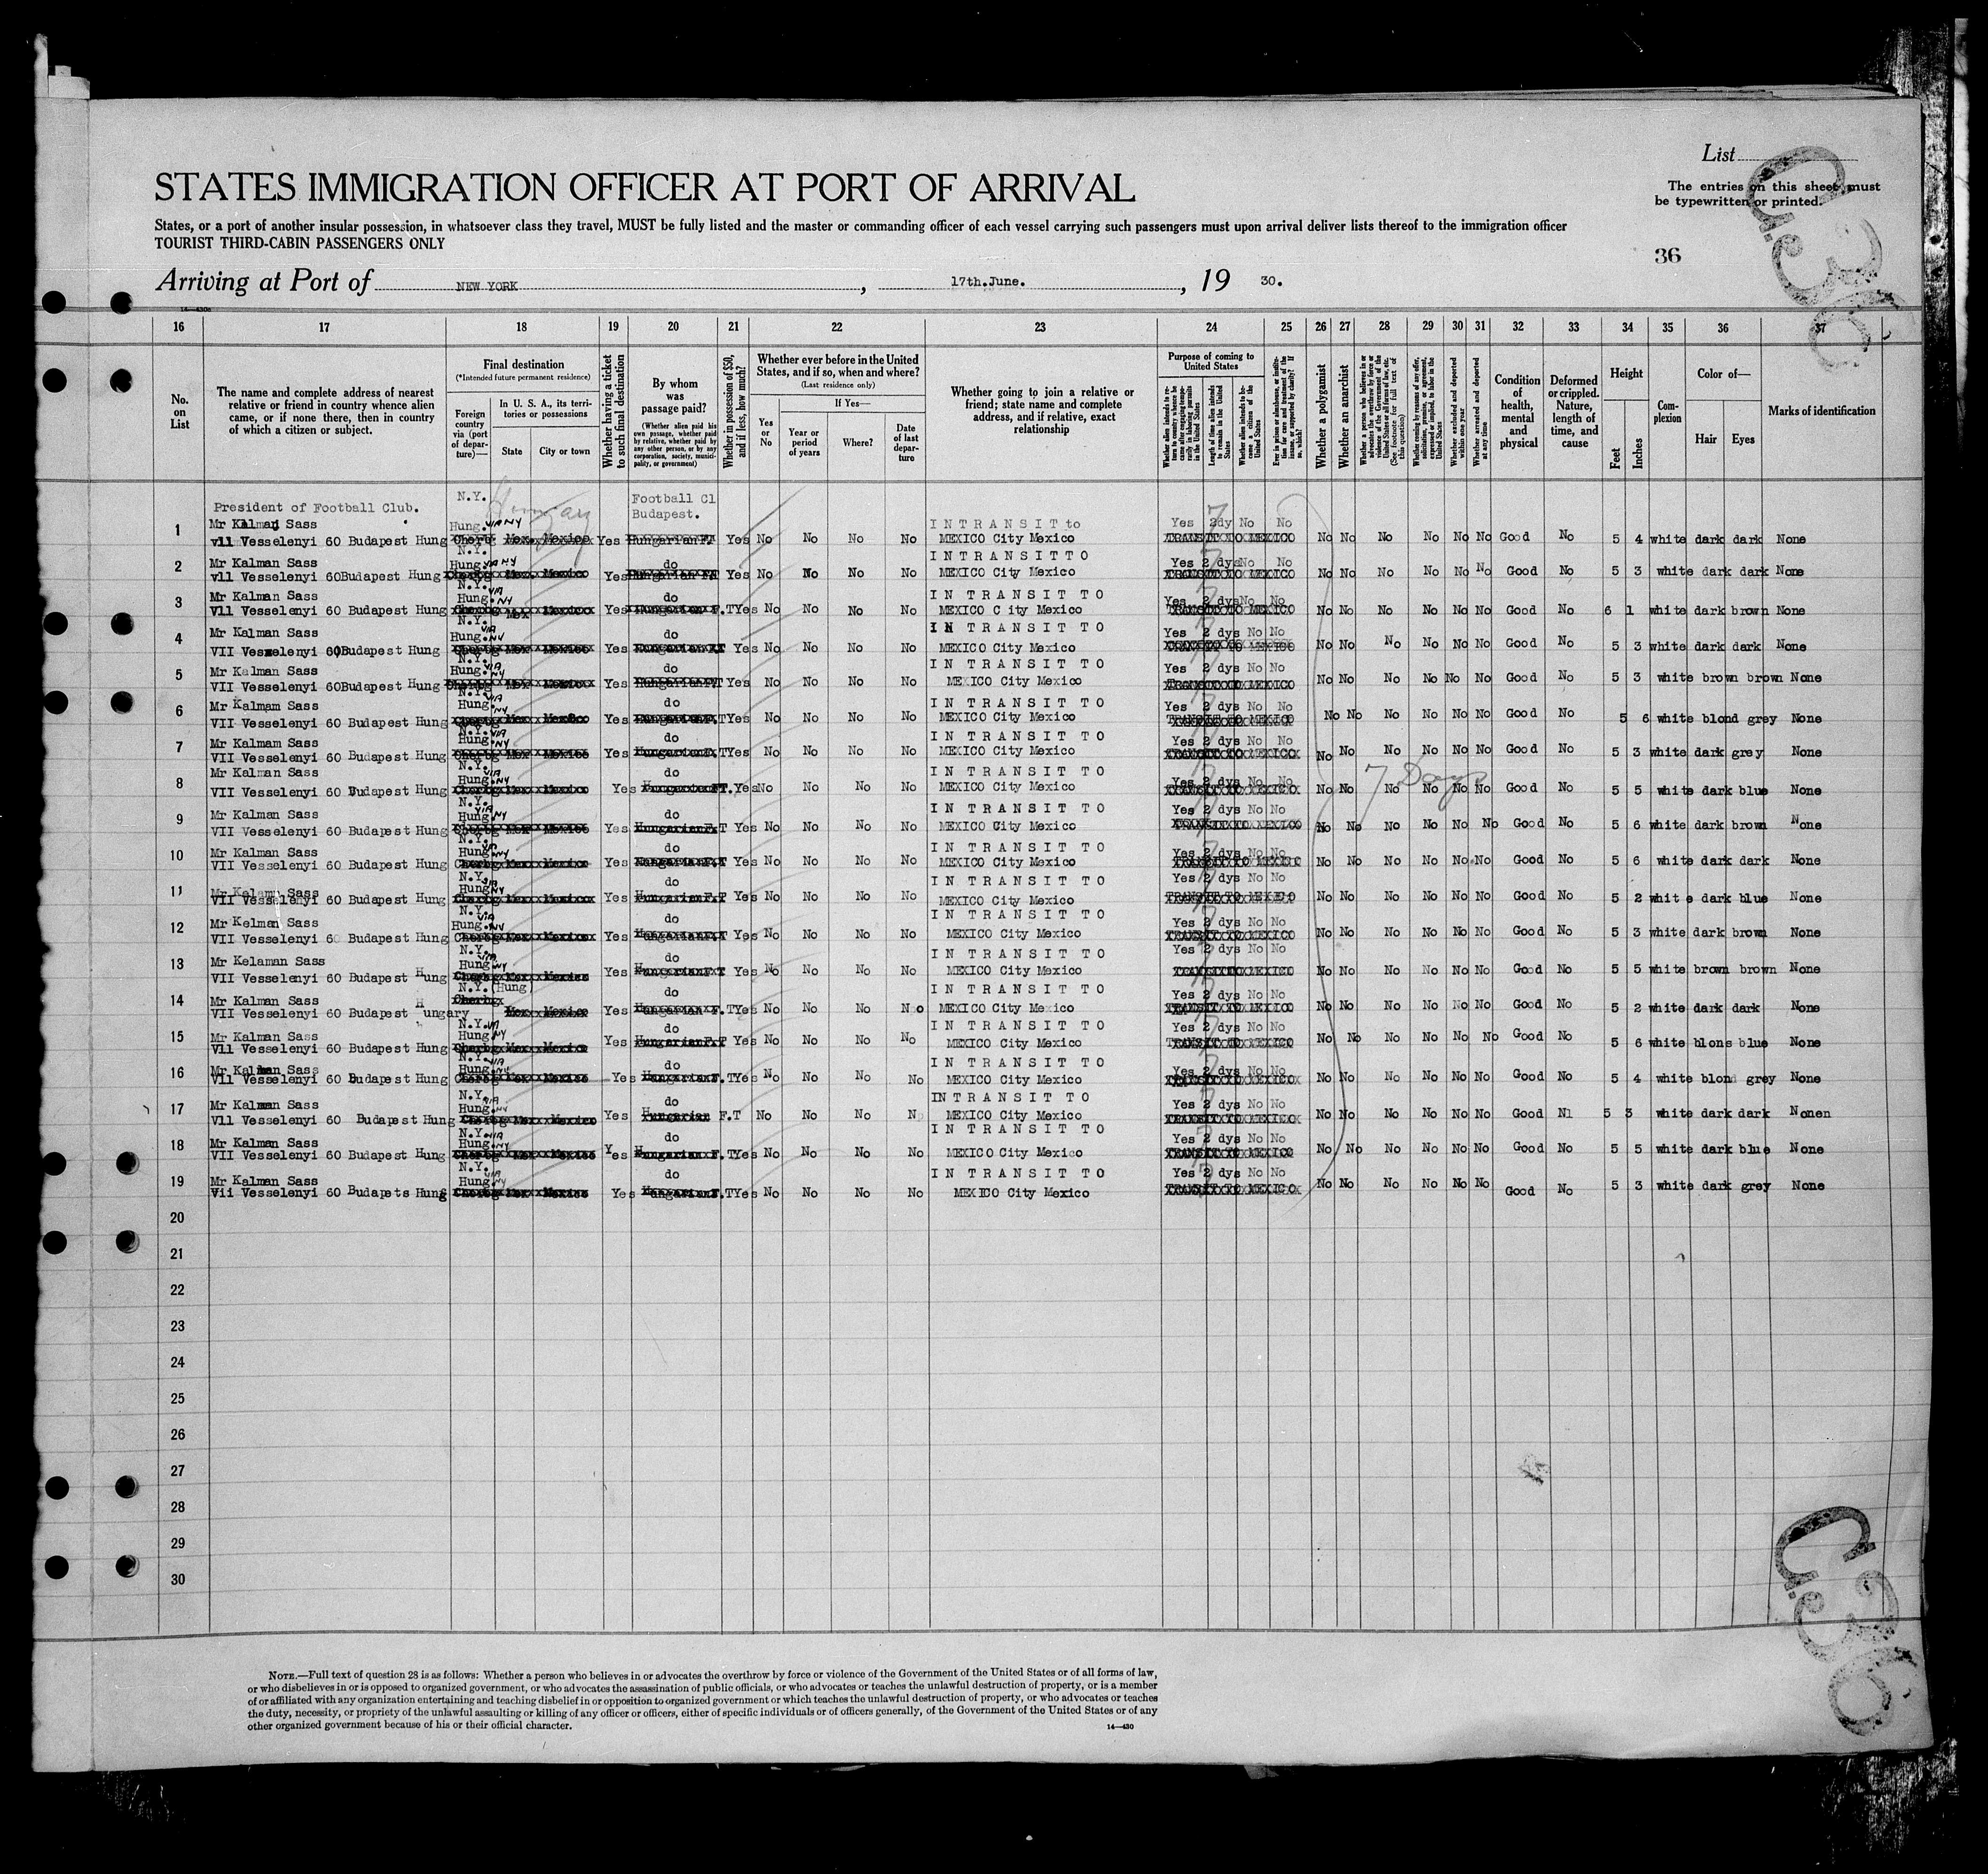 List
The entries on this sheet must
be typewritten or printed.
C36
STATES IMMIGRATION OFFICER AT PORT OF ARRIVAL
States, or a port of another insular possession, in whatsoever class they travel, MUST be fully listed and the master or commanding officer of each vessel carrying such passengers must upon arrival deliver lists thereof to the immigration officer
TOURIST THIRD-CABIN PASSENGERS ONLY
36
Arriving at Port of NEW YORK , 17th.June. , 19 30.
16 17 18 19 20 21 22 23 24 25 26 27 28 29 30 31 32 33 34 35 36 37
No. on List
The name and complete address of nearest relative or friend in country whence alien came, or if none there, then in country of which a citizen or subject.
Final destination
(*Intended future permanent residence)
Foreign country via (port of departure)—
In U. S. A., its territories or possessions
State City or town
Whether having a ticket to such final destination
By whom was passage paid?
(Whether alien paid his own passage, whether paid by relative, whether paid by any other person, or by any corporation, society, municipality, or government)
Whether in possession of $50, and if less, how much?
Whether ever before in the United States, and if so, when and where?
(Last residence only)
Yes or No
If Yes—
Year or period of years
Where?
Date of last departure
Whether going to join a relative or friend; state name and complete address, and if relative, exact relationship
Purpose of coming to United States
Length of time alien intends to remain in the United States
Whether alien intends to become a citizen of the United States
Whether a polygamist
Whether an anarchist
Whether excluded and deported within one year
Whether arrested and deported at any time
Condition of health, mental and physical
Deformed or crippled. Nature, length of time, and cause
Height
Feet Inches
Complexion
Color of—
Hair Eyes
Marks of identification
President of Football Club. N.Y. Football Cl Budapest.
1 Mr Kalman Sass Hung. VIA NY INTRANSIT to Yes 2dy No No
vll Vesselenyi 60 Budapest Hung Yes Yes No No No No MEXICO City Mexico No No No No No No Good No 5 4 white dark dark None
2 Mr Kalman Sass N.Y. Hung. VIA NY do INTRANSITTO Yes 2 dys No No
vll Vesselenyi 60Budapest Hung Yes Yes No No No No MEXICO City Mexico No No No No No No Good No 5 3 white dark dark None
3 Mr Kalman Sass N.Y. Hung. VIA NY do IN TRANSIT TO Yes 2 dys No No
Vll Vesselenyi 60 Budapest Hung Yes F.T Yes No No No No MEXICO C ity Mexico No No No No No No Good No 6 1 white dark brown None
4 Mr Kalman Sass N.Y. Hung. VIA NY do IN TRANSIT TO Yes 2 dys No No
VII Vesselenyi 60Budapest Hung Yes Yes No No No No MEXICO City Mexico No No No No No No Good No 5 3 white dark dark None
5 Mr Kalman Sass N.Y. Hung. VIA NY do IN TRANSIT TO Yes 2 dys No No
VII Vesselenyi 60Budapest Hung Yes Yes No No No No MEXICO City Mexico No No No No No No Good No 5 3 white brown brown None
6 Mr Kalmam Sass N.Y. Hung. NY do IN TRANSIT TO Yes 2 dys No No
VII Vesselenyi 60 Budapest Hung Yes Yes No No No No MEXICO City Mexico No No No No No No Good No 5 6 white blond grey None
7 Mr Kalmam Sass N.Y. VIA Hung. NY do IN TRANSIT TO Yes 2 dys No No
VII Vesselenyi 60 Budapest Hung Yes Yes No No No No MEXICO City Mexico No No No No No No Good No 5 3 white dark grey None
8 Mr Kalman Sass N.Y. Hung. VIA NY do IN TRANSIT TO Yes 2 dys No No 7 Days
VII Vesselenyi 60 Budapest Hung Yes Yes No No No No MEXICO City Mexico No No No No No No Good No 5 5 white dark blue None
9 Mr Kalman Sass N.Y. Hung. VIA NY do IN TRANSIT TO Yes 2 dys No No
VII Vesselenyi 60 Budapest Hung Yes Yes No No No No MEXICO City Mexico No No No No No No Good No 5 6 white dark brown None
10 Mr Kalman Sass N.Y. Hung. NY do IN TRANSIT TO Yes 2 dys No No
VII Vesselenyi 60 Budapest Hung Yes Yes No No No No MEXICO City Mexico No No No No No No Good No 5 6 white dark dark None
11 Mr Kalamn Sass N.Y. Hung. NY do IN TRANSIT TO Yes 2 dys No No
VII Vesselenyi 60 Budapest Hung Yes Yes No No No No MEXICO City Mexico No No No No No No Good No 5 2 whit e dark blue None
12 Mr Kelman Sass N.Y. Hung. VIA NY do IN TRANSIT TO Yes 2 dys No No
VII Vesselenyi 60 Budapest Hung Yes Yes No No No No MEXICO City Mexico No No No No No No Good No 5 3 white dark brown None
13 Mr Kelaman Sass N.Y. Hung. VIA NY do IN TRANSIT TO Yes 2 dys No No
VII Vesselenyi 60 Budapest Hung Yes Yes No No No No MEXICO City Mexico No No No No No No Good No 5 5 white brown brown None
14 Mr Kalman Sass N.Y. (Hung) do IN TRANSIT TO Yes 2 dys No No
VII Vesselenyi 60 Budapest Hungary Yes Yes No No No No MEXICO City Mexico No No No No No No Good No 5 2 white dark dark None
15 Mr Kalman Sass N.Y. VIA Hung. NY do IN TRANSIT TO Yes 2 dys No No
Vll Vesselenyi 60 Budapest Hung Yes Yes No No No No MEXICO City Mexico No No No No No No Good No 5 6 white blons blue None
16 Mr Kalman Sass N.Y. VIA Hung. NY do IN TRANSIT TO Yes 2 dys No No
Vll Vesselenyi 60 Budapest Hung Yes Yes No No No No MEXICO City Mexico No No No No No No Good No 5 4 white blond grey None
17 Mr Kalman Sass N.Y. VIA Hung. NY do INTRANSIT TO Yes 2 dys No No
Vll Vesselenyi 60 Budapest Hung Yes Hungarian F.T No No No No MEXICO City Mexico No No No No No No Good Nl 5 3 white dark dark Nonen
18 Mr Kalman Sass N.Y. VIA Hung. NY do IN TRANSIT TO Yes 2 dys No No
VII Vesselenyi 60 Budapest Hung Yes Yes No No No No MEXICO City Mexico No No No No No No Good No 5 5 white dark blue None
19 Mr Kalman Sass N.Y. Hung. NY do IN TRANSIT TO Yes 2 dys No No
Vii Vesselenyi 60 Budapets Hung Yes Yes No No No No MEXICO City Mexico No No No No No No Good No 5 3 white dark grey None
20
21
22
23
24
25
26
27
28
29
30
C36
NOTE.—Full text of question 28 is as follows: Whether a person who believes in or advocates the overthrow by force or violence of the Government of the United States or of all forms of law,
or who disbelieves in or is opposed to organized government, or who advocates the assassination of public officials, or who advocates or teaches the unlawful destruction of property, or is a member
of or affiliated with any organization entertaining and teaching disbelief in or opposition to organized government or which teaches the unlawful destruction of property, or who advocates or teaches
the duty, necessity, or propriety of the unlawful assaulting or killing of any officer or officers, either of specific individuals or of officers generally, of the Government of the United States or of any
other organized government because of his or their official character.
14—430